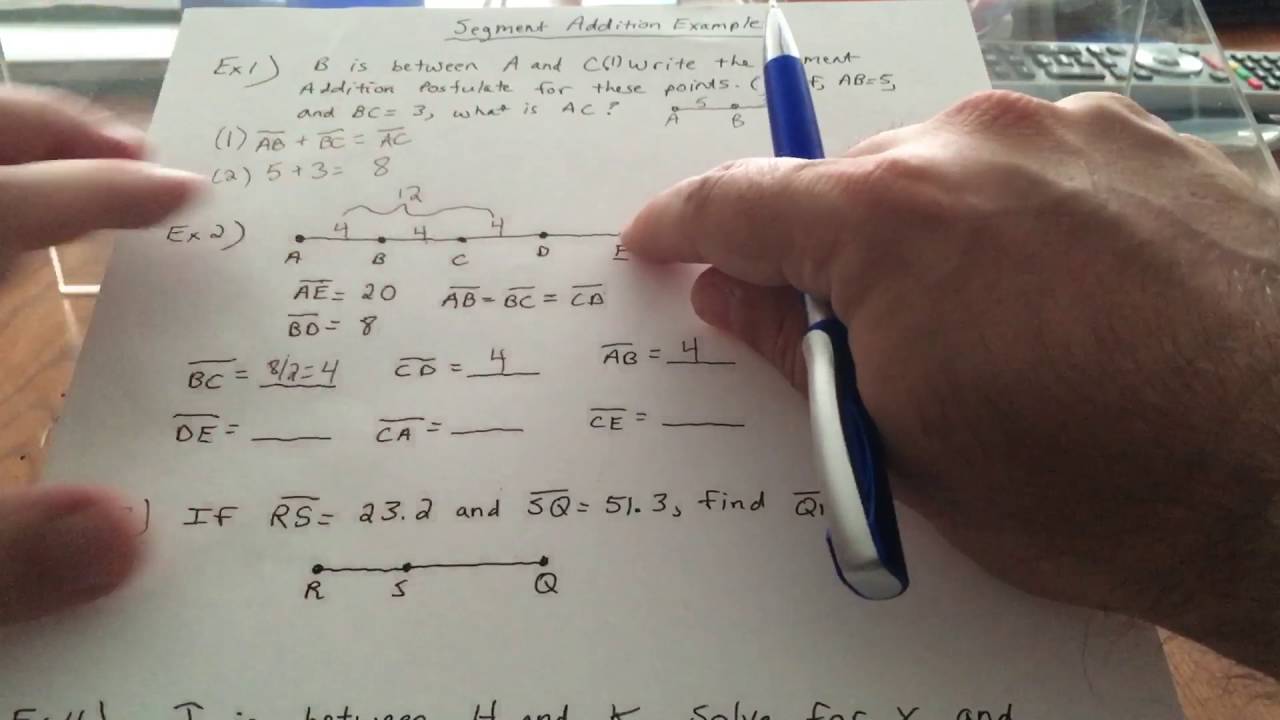 Segment Addition Example
Ex1) B is between A and C(1) Write the ment
Addition Postulate for these points. ( AB=5,
and BC= 3, what is AC?
5
A B
(1) AB + BC = AC
(2) 5 + 3 = 8
12
Ex 2) 4 4 4
A B C D E
AE = 20 AB = BC = CD
BD = 8
BC = 8/2=4 CD = 4 AB = 4
DE = ____ CA = ____ CE = ____
) If RS = 23.2 and SQ = 51.3, find
R S Q
I between H and K Solve for X and